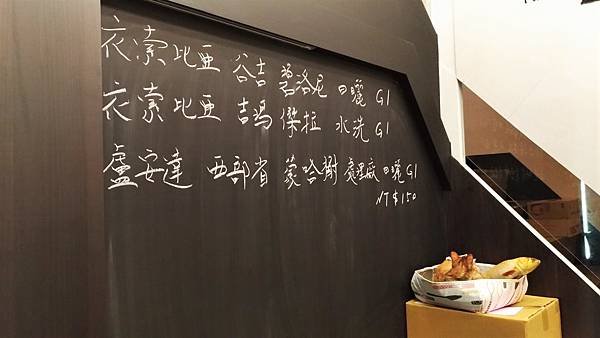 衣索比亞 谷吉 罌洛尼 日曬 G1
衣索比亞 吉瑪 傑拉 水洗 G1
盧安達 西部省 蒙哈榭 處理廠 日曬 G1
NT$150